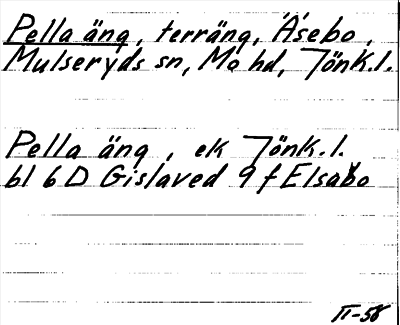 Pella äng, terräng, Åsebo,
Mulseryds sn, Mo hd, Jönk.l.
Pella äng, ek Jönk.l.
bl 6 D Gislaved 9 f Elsabo
II-58